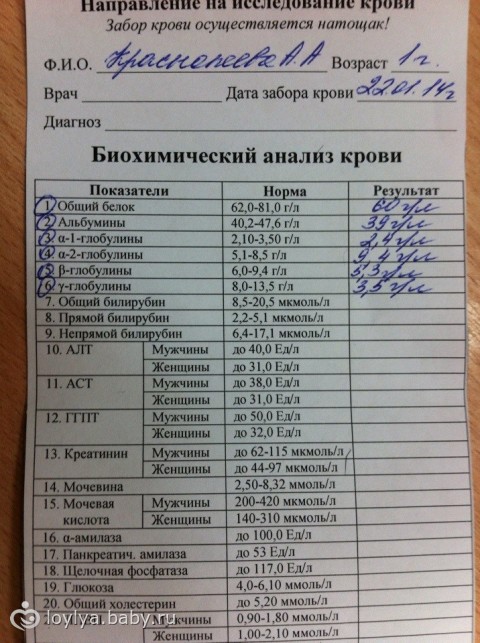 Направление на исследование крови
Забор крови осуществляется натощак!
Ф.И.О. Краснопеева А.А Возраст 1 г.
Врач Дата забора крови 22.01.14г
Диагноз
Биохимический анализ крови
Показатели Норма Результат
1. Общий белок 62,0-81,0 г/л 60 г/л
2. Альбумины 40,2-47,6 г/л 39 г/л
3. α-1-глобулины 2,10-3,50 г/л 2,4 г/л
4. α-2-глобулины 5,1-8,5 г/л 9,4 г/л
5. β-глобулины 6,0-9,4 г/л 5,3 г/л
6. γ-глобулины 8,0-13,5 г/л 3,5 г/л
7. Общий билирубин 8,5-20,5 мкмоль/л
8. Прямой билирубин 2,2-5,1 мкмоль/л
9. Непрямой билирубин 6,4-17,1 мкмоль/л
10. АЛТ Мужчины до 40,0 Ед/л
Женщины до 31,0 Ед/л
11. АСТ Мужчины до 38,0 Ед/л
Женщины до 31,0 Ед/л
12. ГГПТ Мужчины до 50,0 Ед/л
Женщины до 32,0 Ед/л
13. Креатинин Мужчины до 62-115 мкмоль/л
Женщины до 44-97 мкмоль/л
14. Мочевина 2,50-8,32 ммоль/л
15. Мочевая кислота Мужчины 200-420 мкмоль/л
Женщины 140-310 мкмоль/л
16. α-амилаза до 100,0 Ед/л
17. Панкреатич. амилаза до 53 Ед/л
18. Щелочная фосфатаза до 117,0 Ед/л
19. Глюкоза 4,0-6,10 ммоль/л
20. Общий холестерин до 5,20 ммоль/л
Мужчины 0,90-1,80 ммоль/л
Женщины 1,00-2,10 ммоль/л
loylya.baby.ru